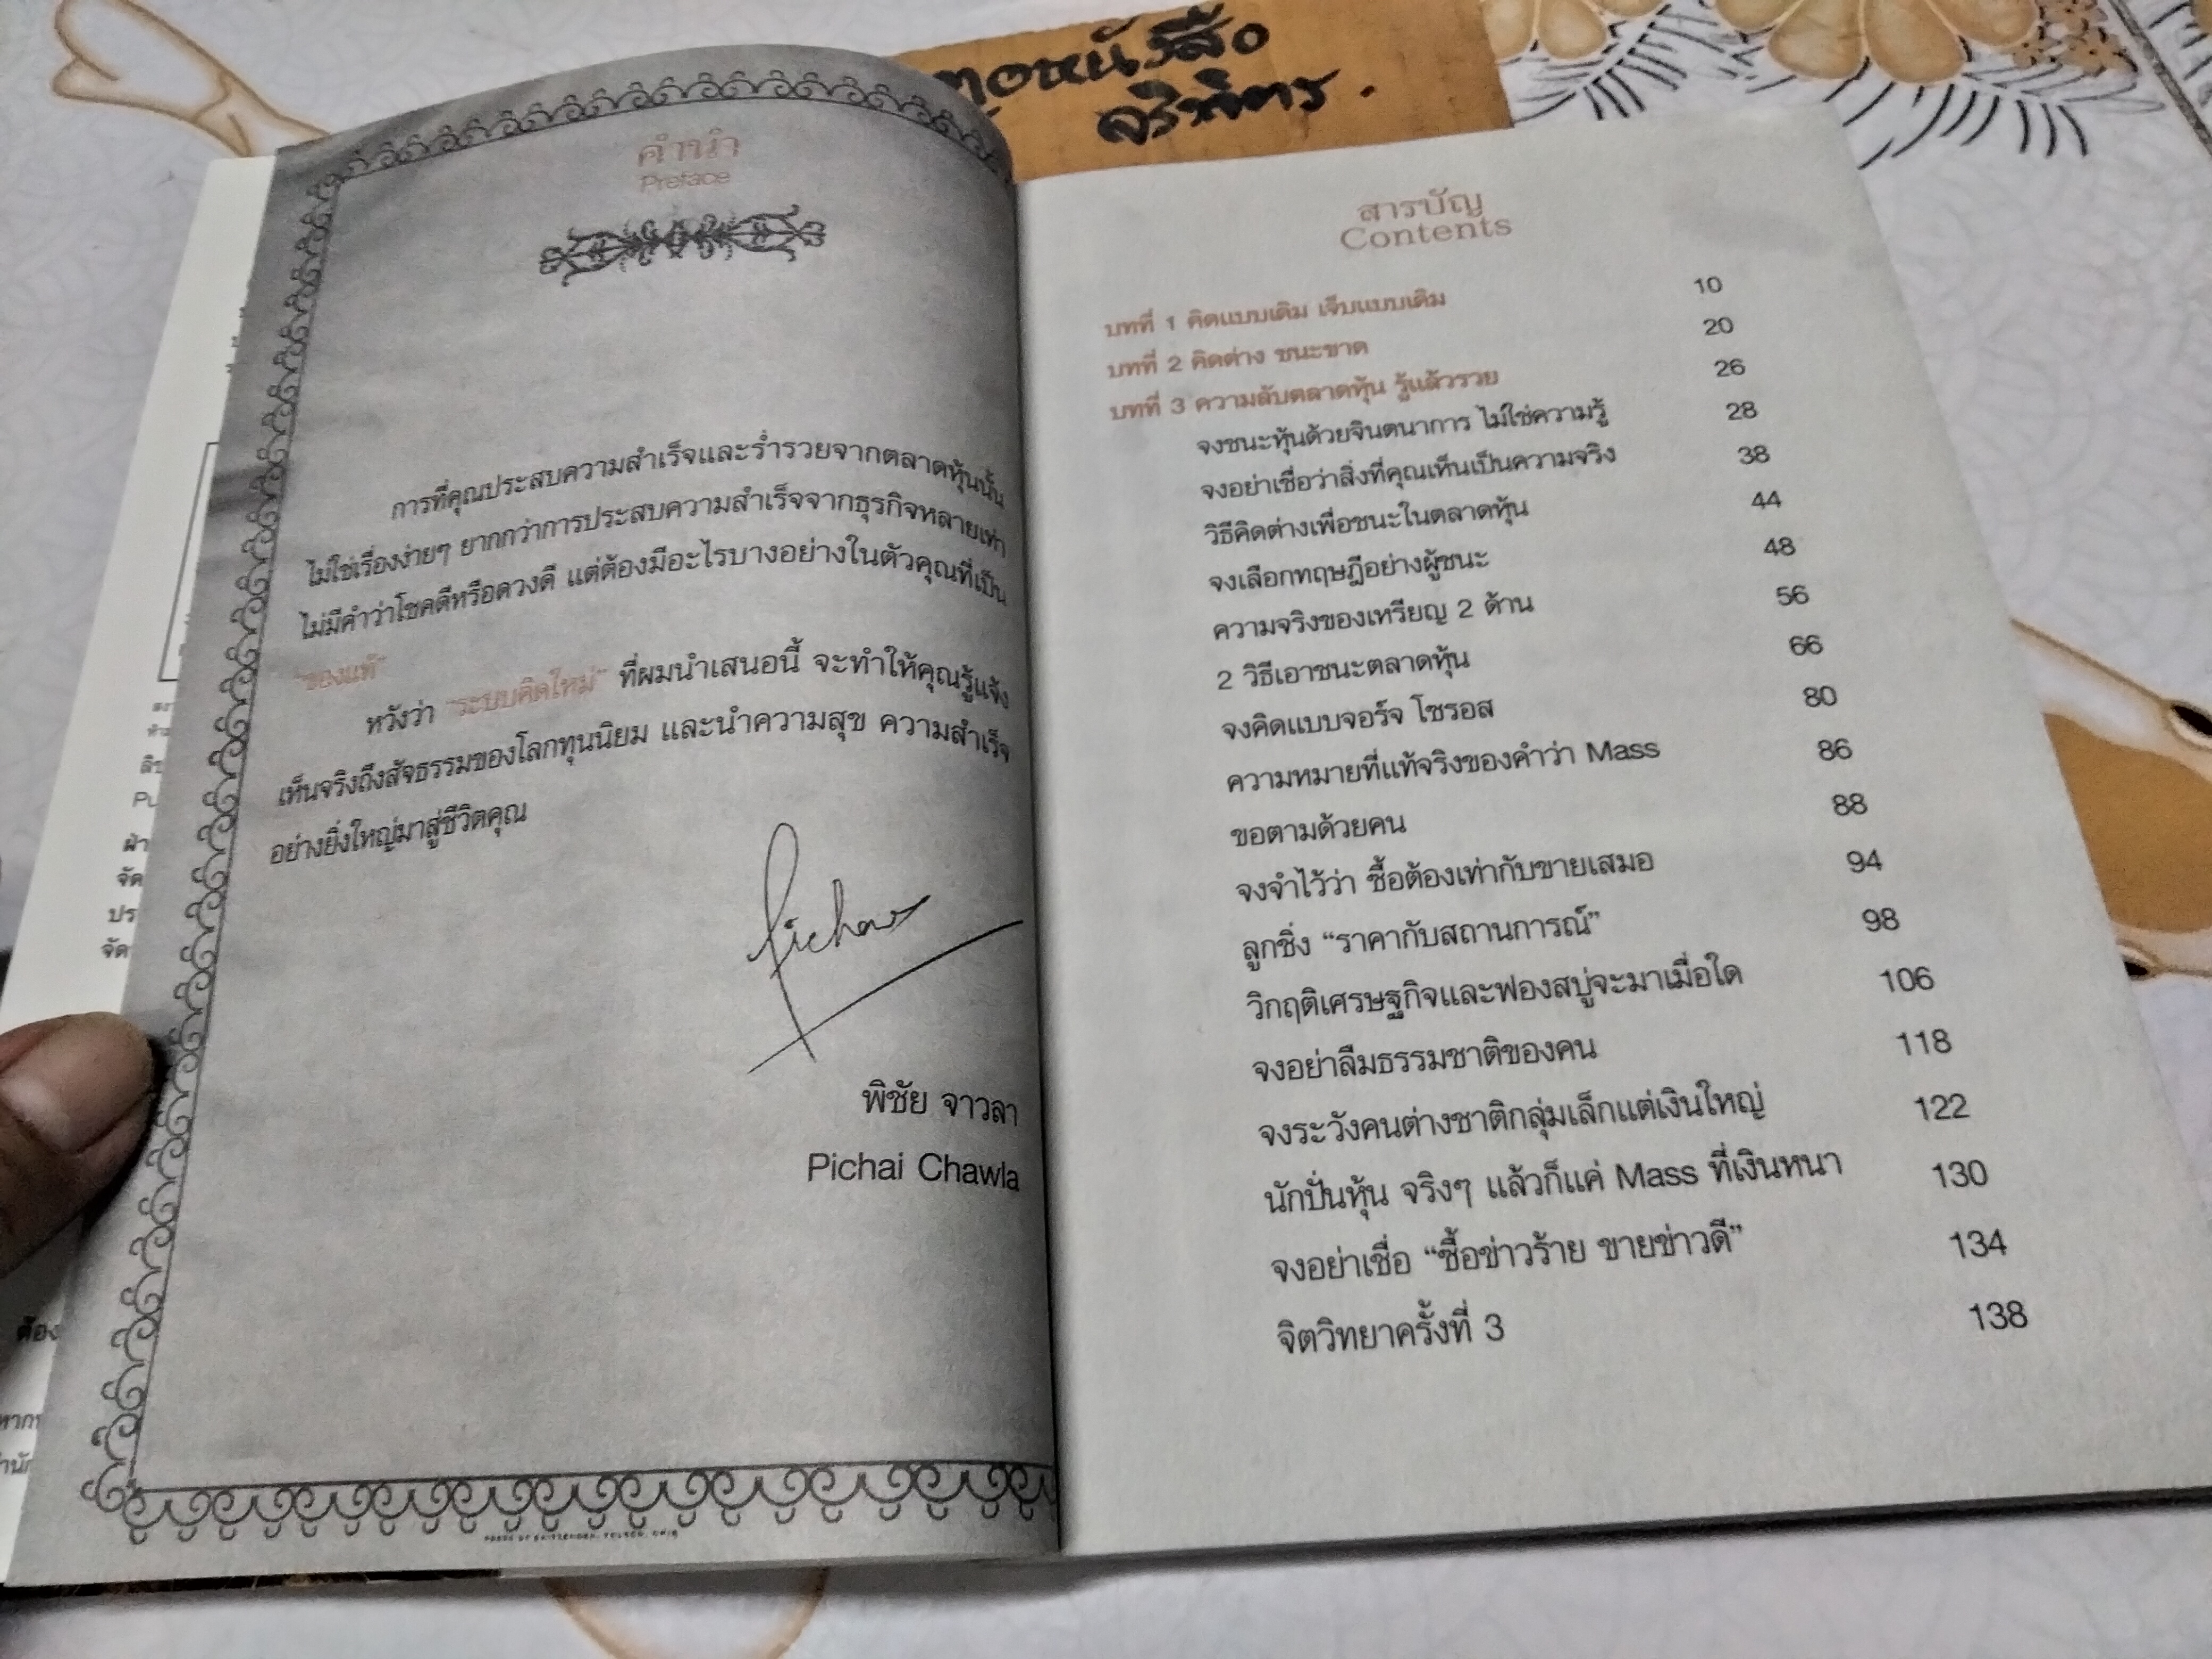 คำนำ
Preface
การที่คุณประสบความสำเร็จและร่ำรวยจากตลาดหุ้นนั้น
ไม่ใช่เรื่องง่ายๆ ยากกว่าการประสบความสำเร็จจากธุรกิจหลายเท่า
ไม่มีคำว่าโชคดีหรือดวงดี แต่ต้องมีอะไรบางอย่างในตัวคุณที่เป็น
"ของแท้"
หวังว่า "ระบบคิดใหม่" ที่ผมนำเสนอนี้ จะทำให้คุณรู้แจ้ง
เห็นจริงถึงสัจธรรมของโลกทุนนิยม และนำความสุข ความสำเร็จ
อย่างยิ่งใหญ่มาสู่ชีวิตคุณ
Pichai
พิชัย จาวลา
Pichai Chawla
หนังสือ
สารบัญ
Contents
บทที่ 1 คิดแบบเดิม เจ็บแบบเดิม 10
บทที่ 2 คิดต่าง ชนะขาด 20
บทที่ 3 ความลับตลาดหุ้น รู้แล้วรวย 26
จงชนะหุ้นด้วยจินตนาการ ไม่ใช่ความรู้ 28
จงอย่าเชื่อว่าสิ่งที่คุณเห็นเป็นความจริง 38
วิธีคิดต่างเพื่อชนะในตลาดหุ้น 44
จงเลือกทฤษฎีอย่างผู้ชนะ 48
ความจริงของเหรียญ 2 ด้าน 56
2 วิธีเอาชนะตลาดหุ้น 66
จงคิดแบบจอร์จ โซรอส 80
ความหมายที่แท้จริงของคำว่า Mass 86
ขอตามด้วยคน 88
จงจำไว้ว่า ซื้อต้องเท่ากับขายเสมอ 94
ลูกชิ่ง “ราคากับสถานการณ์” 98
วิกฤติเศรษฐกิจและฟองสบู่จะมาเมื่อใด 106
จงอย่าลืมธรรมชาติของคน 118
จงระวังคนต่างชาติกลุ่มเล็กแต่เงินใหญ่ 122
นักปั่นหุ้น จริงๆ แล้วก็แค่ Mass ที่เงินหนา 130
จงอย่าเชื่อ “ซื้อข่าวร้าย ขายข่าวดี” 134
จิตวิทยาครั้งที่ 3 138